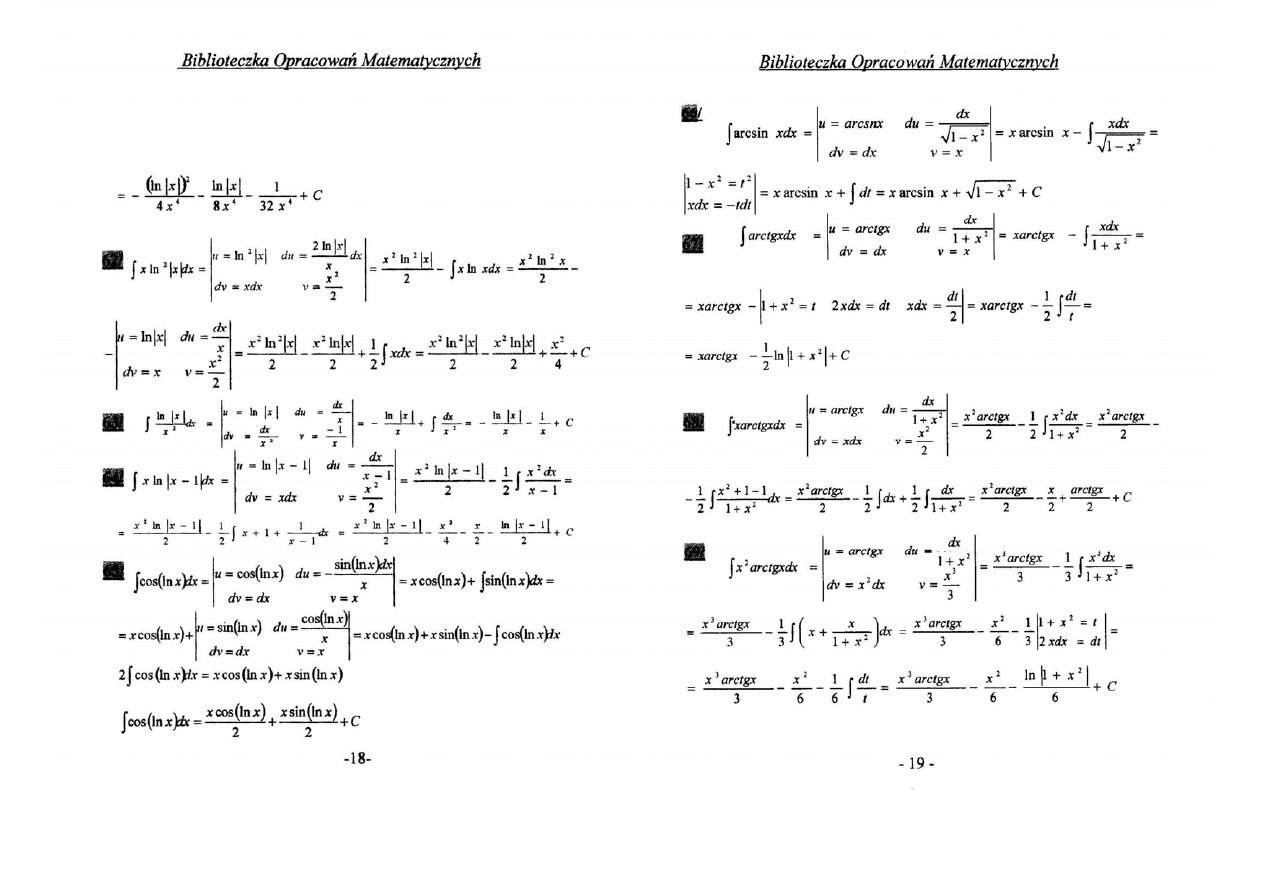 Biblioteczka Opracowań Matematycznych
= - (ln|x|)²/4x⁴ - ln|x|/8x⁴ - 1/32x⁴ + C
∫ x ln²|x|dx = |u = ln²|x| du = 2 ln|x|/x dx; dv = xdx v = x²/2| = x² ln²|x|/2 - ∫ x ln xdx = x² ln² x/2 -
- |u = ln|x| du = dx/x; dv = x v = x²/2| = x² ln²|x|/2 - x² ln|x|/2 + 1/2 ∫ xdx = x² ln²|x|/2 - x² ln|x|/2 + x²/4 + C
∫ ln|x|/x² dx = |u = ln|x| du = dx/x; dv = dx/x² v = -1/x| = - ln|x|/x + ∫ dx/x² = - ln|x|/x - 1/x + C
64 ∫ x ln|x - 1|dx = |u = ln|x - 1| du = dx/(x - 1); dv = xdx v = x²/2| = x² ln|x - 1|/2 - 1/2 ∫ x²dx/(x - 1) =
= x² ln|x - 1|/2 - 1/2 ∫ x + 1 + 1/(x - 1) dx = x² ln|x - 1|/2 - x²/4 - x/2 - ln|x - 1|/2 + C
∫cos(ln x)dx = |u = cos(ln x) du = - sin(ln x)dx/x; dv = dx v = x| = x cos(ln x) + ∫sin(ln x)dx =
= x cos(ln x) + |u = sin(ln x) du = cos(ln x)/x; dv = dx v = x| = x cos(ln x) + x sin(ln x) - ∫cos(ln x)dx
2∫cos(ln x)dx = x cos(ln x) + x sin(ln x)
∫cos(ln x)dx = x cos(ln x)/2 + x sin(ln x)/2 + C
-18-
Biblioteczka Opracowań Matematycznych
66/ ∫arcsin xdx = |u = arcsnx du = dx/√(1 - x²); dv = dx v = x| = x arcsin x - ∫ xdx/√(1 - x²) =
|1 - x² = t²; xdx = -tdt| = x arcsin x + ∫ dt = x arcsin x + √(1 - x²) + C
67 ∫ arctgxdx = |u = arctgx du = dx/(1 + x²); dv = dx v = x| = xarctgx - ∫ xdx/(1 + x²) =
= xarctgx - |1 + x² = t 2xdx = dt xdx = dt/2| = xarctgx - 1/2 ∫ dt/t =
= xarctgx - 1/2 ln|1 + x²| + C
∫xarctgxdx = |u = arctgx du = dx/(1 + x²); dv = xdx v = x²/2| = x²arctgx/2 - 1/2 ∫ x²dx/(1 + x²) = x²arctgx/2 -
- 1/2 ∫ (x² + 1 - 1)/(1 + x²) dx = x²arctgx/2 - 1/2 ∫dx + 1/2 ∫ dx/(1 + x²) = x²arctgx/2 - x/2 + arctgx/2 + C
69 ∫x²arctgxdx = |u = arctgx du = dx/(1 + x²); dv = x²dx v = x³/3| = x³arctgx/3 - 1/3 ∫ x³dx/(1 + x²) =
= x³arctgx/3 - 1/3 ∫(x + x/(1 + x²))dx = x³arctgx/3 - x²/6 - 1/3 |1 + x² = t; 2xdx = dt| =
= x³arctgx/3 - x²/6 - 1/6 ∫ dt/t = x³arctgx/3 - x²/6 - ln|1 + x²|/6 + C
- 19 -